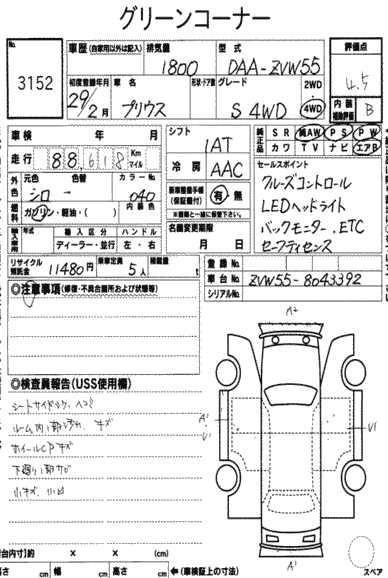 グリーンコーナー
No.
3152
車歴 (自家用以外は記入) 排気量 型式
1800 DAA-ZVW55
初度登録年月 車名 形状・ドア数 グレード 2WD
29年2月 プリウス S 4WD 4WD
評価点
4.5
内装補助評価 B
車検 年 月
走行 88,618 Km マイル
シフト
IAT
冷房 AAC
純正品 SR 純AW PS PW
カワ TV ナビ エアB
外色 元色 色替 カラーNo.
シロ → 040
内装色
燃料 ガソリン・軽油・( )
新車整備手帳 (保証書付) 有・無
※書類と一緒に保管下さい。
セールスポイント
クルーズコントロール
LEDヘッドライト
バックモニター.ETC
セーフティセンス
輸入車用 年式 輸入区分 ハンドル
ディーラー・並行 左・右
名義変更期限
月 日
リサイクル預託金 11480円 乗車定員 5人 積載量 t
登録No.
車台No. ZVW55-8043392
シリアルNo.
◎注意事項 (修復・不具合箇所および状態等)
◎検査員報告(USS使用欄)
シートサイドスレ、ヘコミ
ルーム内 キズ
ホイールCPキズ
下廻り サビ
小キズ、小凹
A2
A1
V1
A1
V1
A1
スペア
台内寸)約 × × (cm)
高さ cm 幅 cm 高さ cm ←(車検証上の寸法)